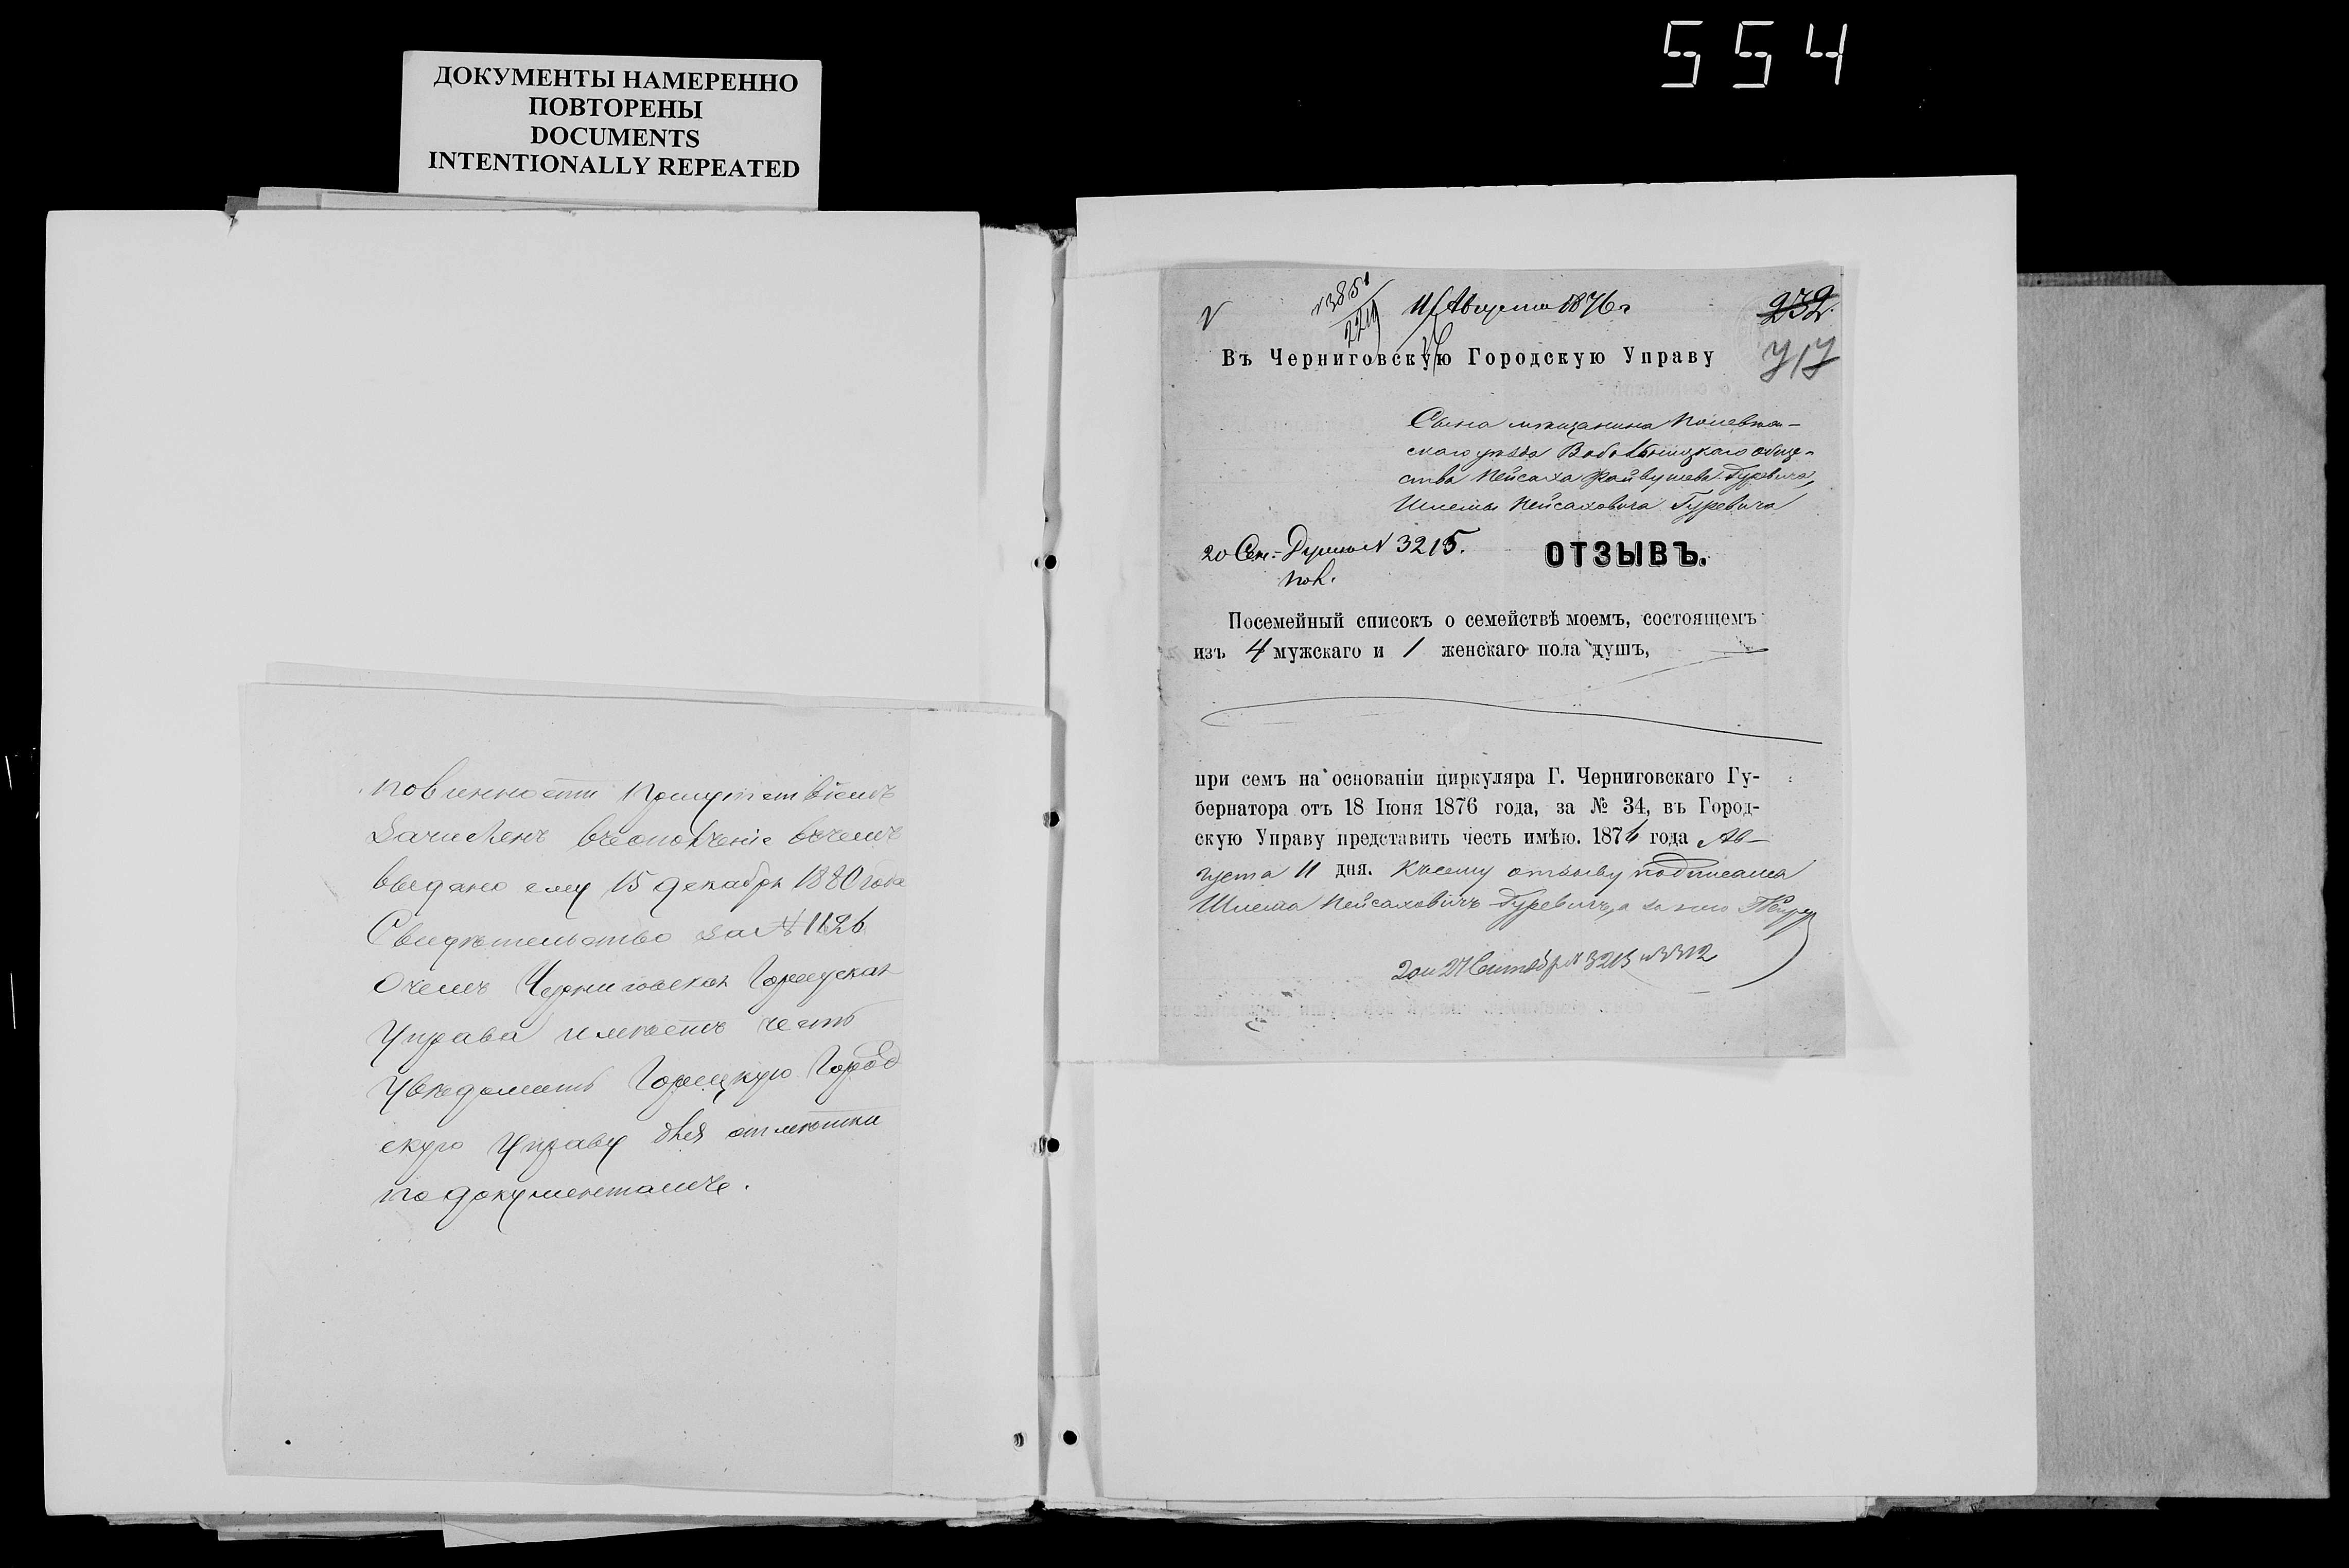 554
ДОКУМЕНТЫ НАМЕРЕННО
ПОВТОРЕНЫ
DOCUMENTS
INTENTIONALLY REPEATED
повинности Присутствіемъ
Зачисленъ въ ополченіе о чемъ
выдано ему 15 декабря 1880 года
Свидѣтельство за № 1126
О чемъ Черниговская Городская
Управа имѣетъ честь
увѣдомить Горецкую Город
скую Управу для отмѣтки
по документамъ.
11 Августа 1876 г
232
717
Въ Черниговскую Городскую Управу
Сына мѣщанина Поневѣж-
скаго уѣзда Вабольницкаго обще-
ства Пейсаха Файвушева Гуревича,
Шлемы Пейсаховича Гуревича
20 Сен. № 3215.
ОТЗЫВЪ.
Посемейный списокъ о семействѣ моемъ, состоящемъ
изъ 4 мужскаго и 1 женскаго пола душъ,
при семъ на основаніи циркуляра Г. Черниговскаго Гу-
бернатора отъ 18 Іюня 1876 года, за № 34, въ Город-
скую Управу представить честь имѣю. 1876 года Ав-
густа 11 дня. Къ сему отзыву подписался
Шлема Пейсаховичъ Гуревичъ, а за него
20 и 27 Сентября 3215 и 3312